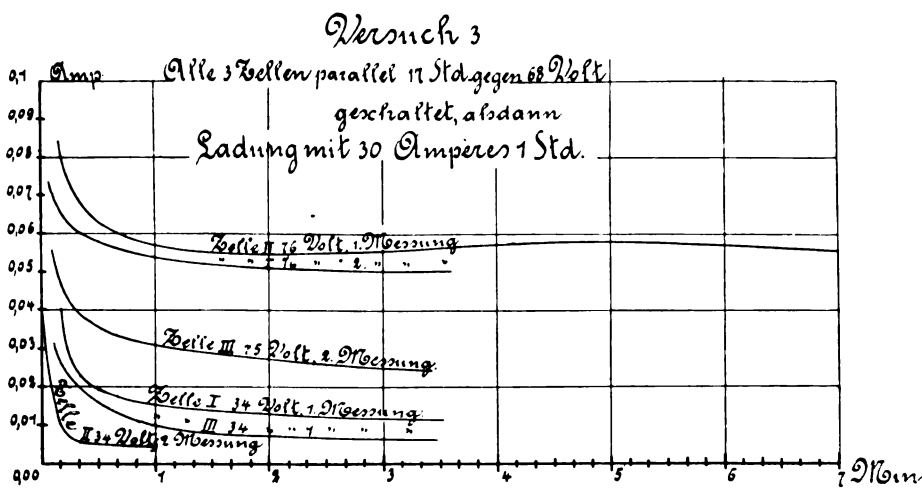 Versuch 3
Amp. Alle 3 Zellen parallel 17 Std. gegen 68 Volt
geschaltet, alsdann
Ladung mit 30 Ampères 1 Std.
0,1
0,09
0,08
0,07
0,06
0,05
0,04
0,03
0,02
0,01
0,00
Zelle II 76 Volt, 1. Messung
" " " 2. " "
Zelle III 75 Volt, 2. Messung.
Zelle I 34 Volt, 1. Messung
" III 34 " 1. " "
Zelle
II 34 Volt, 2 Messung
1 2 3 4 5 6 7 Min.